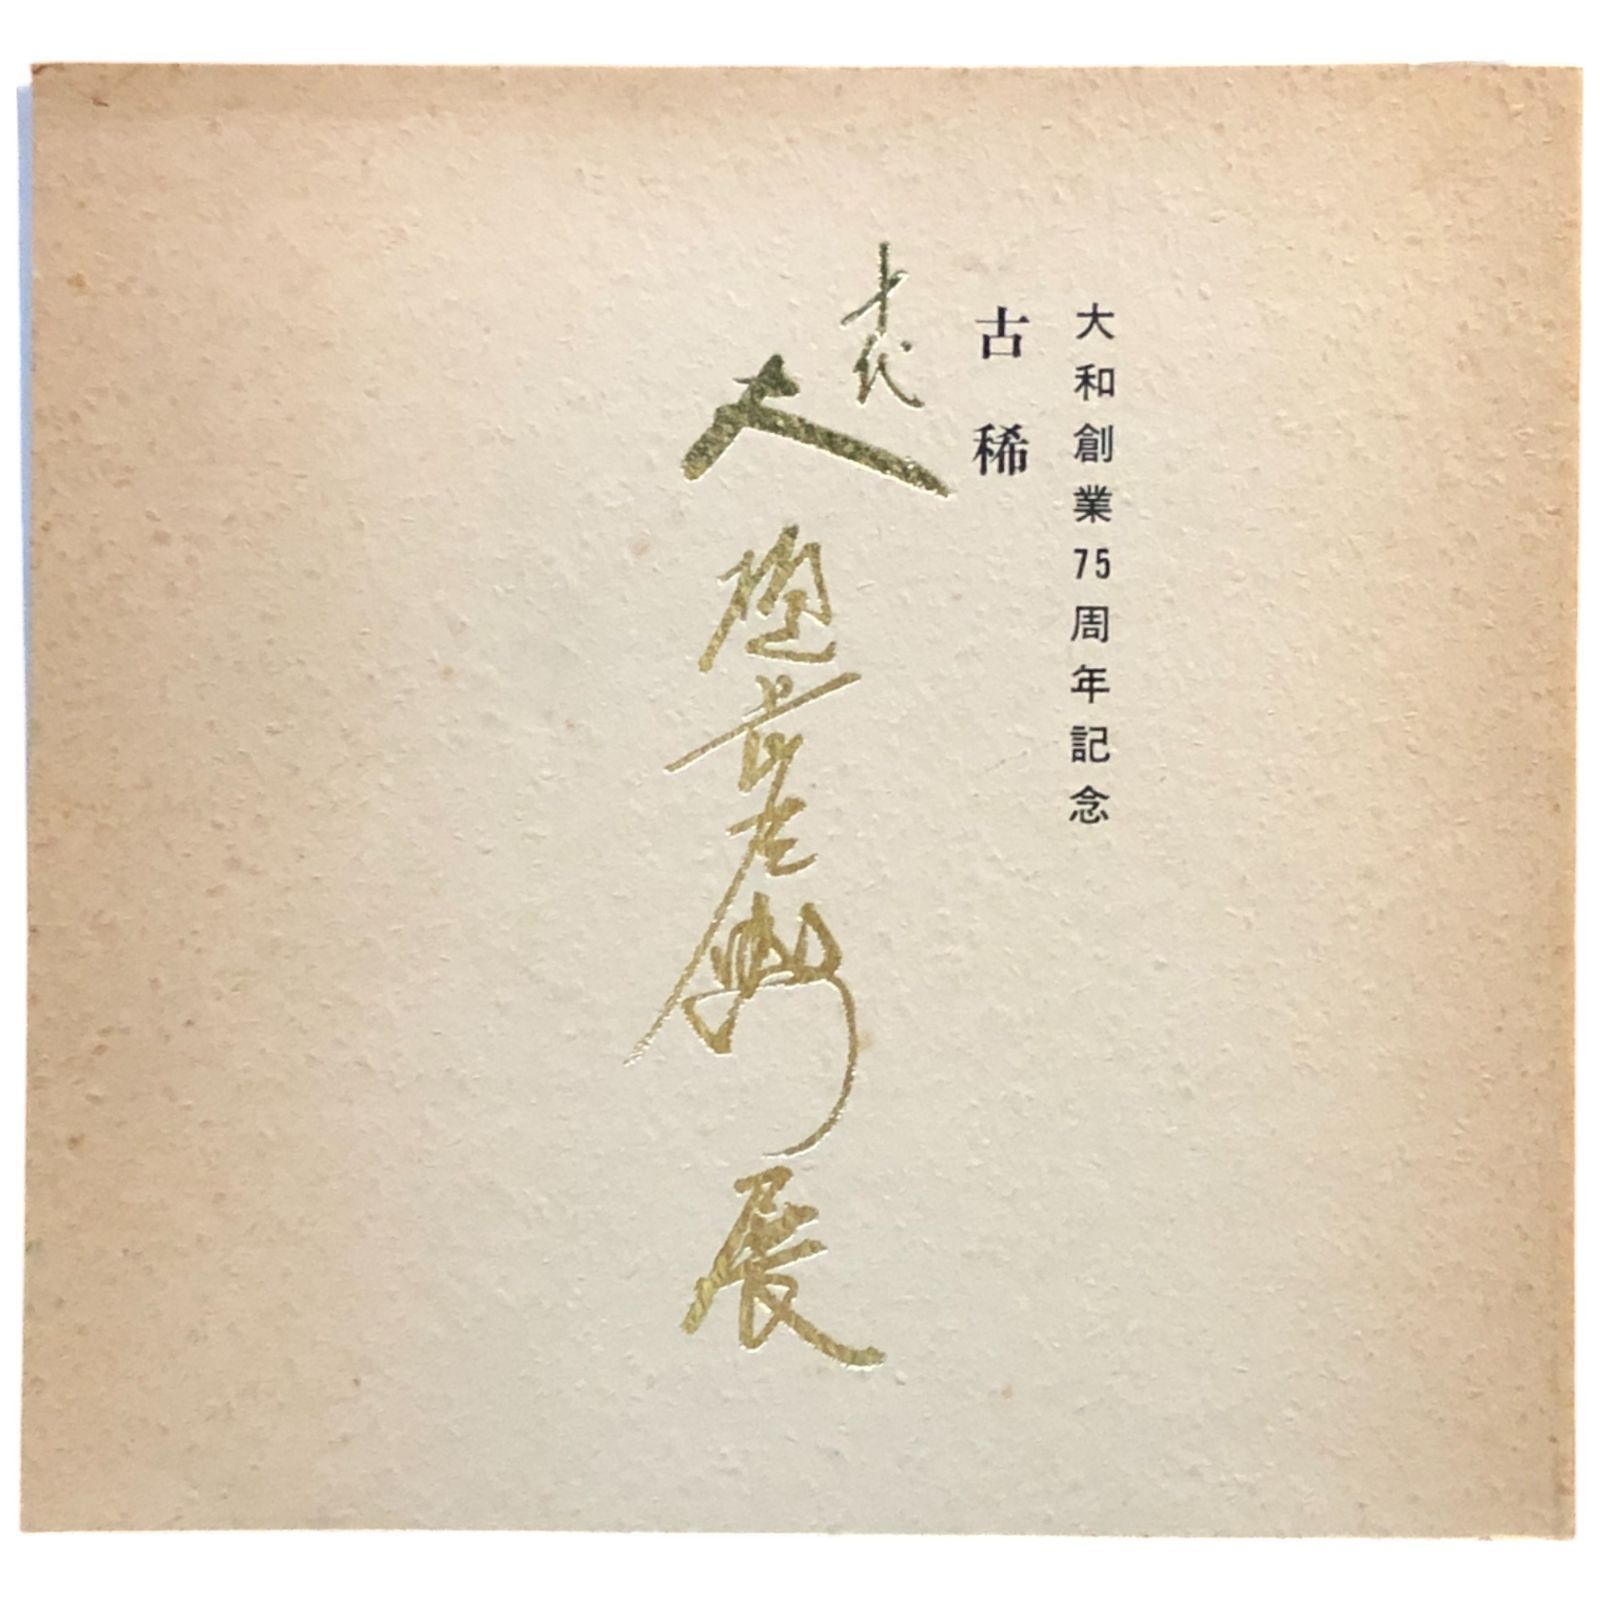 大和創業75周年記念
古稀
十代
大樋長左衛門展